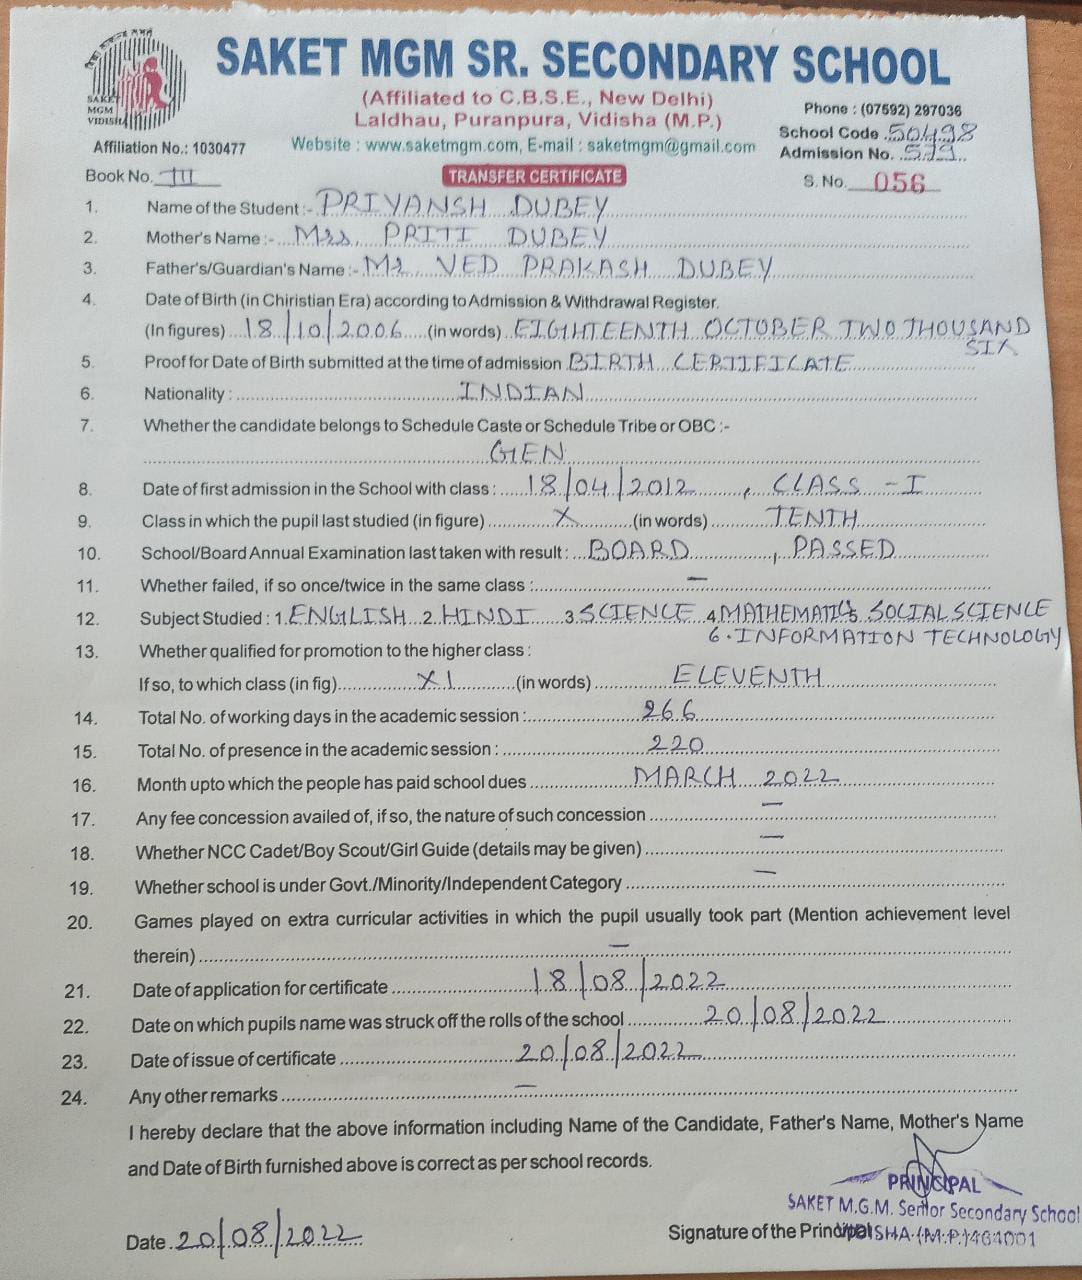 SAKET MGM SR. SECONDARY SCHOOL
SAKET
MGM
VIDISHA
(Affiliated to C.B.S.E., New Delhi)
Laldhau, Puranpura, Vidisha (M.P.)
Phone : (07592) 297036
School Code 50498
Affiliation No.: 1030477
Website : www.saketmgm.com, E-mail : saketmgm@gmail.com
Admission No. 579
Book No. III
TRANSFER CERTIFICATE
S. No. 056
1. Name of the Student :- PRIYANSH DUBEY
2. Mother's Name :- Mrs. PRITI DUBEY
3. Father's/Guardian's Name :- Mr VED PRAKASH DUBEY
4. Date of Birth (in Chiristian Era) according to Admission & Withdrawal Register.
(In figures) 18/10/2006 (in words) EIGHTEENTH OCTOBER TWO THOUSAND
SIX
5. Proof for Date of Birth submitted at the time of admission BIRTH CERTIFICATE
6. Nationality : INDIAN
7. Whether the candidate belongs to Schedule Caste or Schedule Tribe or OBC :-
GEN
8. Date of first admission in the School with class : 18/04/2012, CLASS - I
9. Class in which the pupil last studied (in figure) X (in words) TENTH
10. School/Board Annual Examination last taken with result : BOARD, PASSED
11. Whether failed, if so once/twice in the same class : —
12. Subject Studied : 1. ENGLISH 2. HINDI 3. SCIENCE 4. MATHEMATICS 5. SOCIAL SCIENCE
6. INFORMATION TECHNOLOGY
13. Whether qualified for promotion to the higher class :
If so, to which class (in fig) XI (in words) ELEVENTH
14. Total No. of working days in the academic session : 266
15. Total No. of presence in the academic session : 220
16. Month upto which the people has paid school dues MARCH 2022
17. Any fee concession availed of, if so, the nature of such concession —
18. Whether NCC Cadet/Boy Scout/Girl Guide (details may be given) —
19. Whether school is under Govt./Minority/Independent Category —
20. Games played on extra curricular activities in which the pupil usually took part (Mention achievement level
therein) —
21. Date of application for certificate 18/08/2022
22. Date on which pupils name was struck off the rolls of the school 20/08/2022
23. Date of issue of certificate 20/08/2022
24. Any other remarks —
I hereby declare that the above information including Name of the Candidate, Father's Name, Mother's Name
and Date of Birth furnished above is correct as per school records.
PRINCIPAL
SAKET M.G.M. Senior Secondary School
VIDISHA (M.P.) 464001
Date 20/08/2022
Signature of the Principal